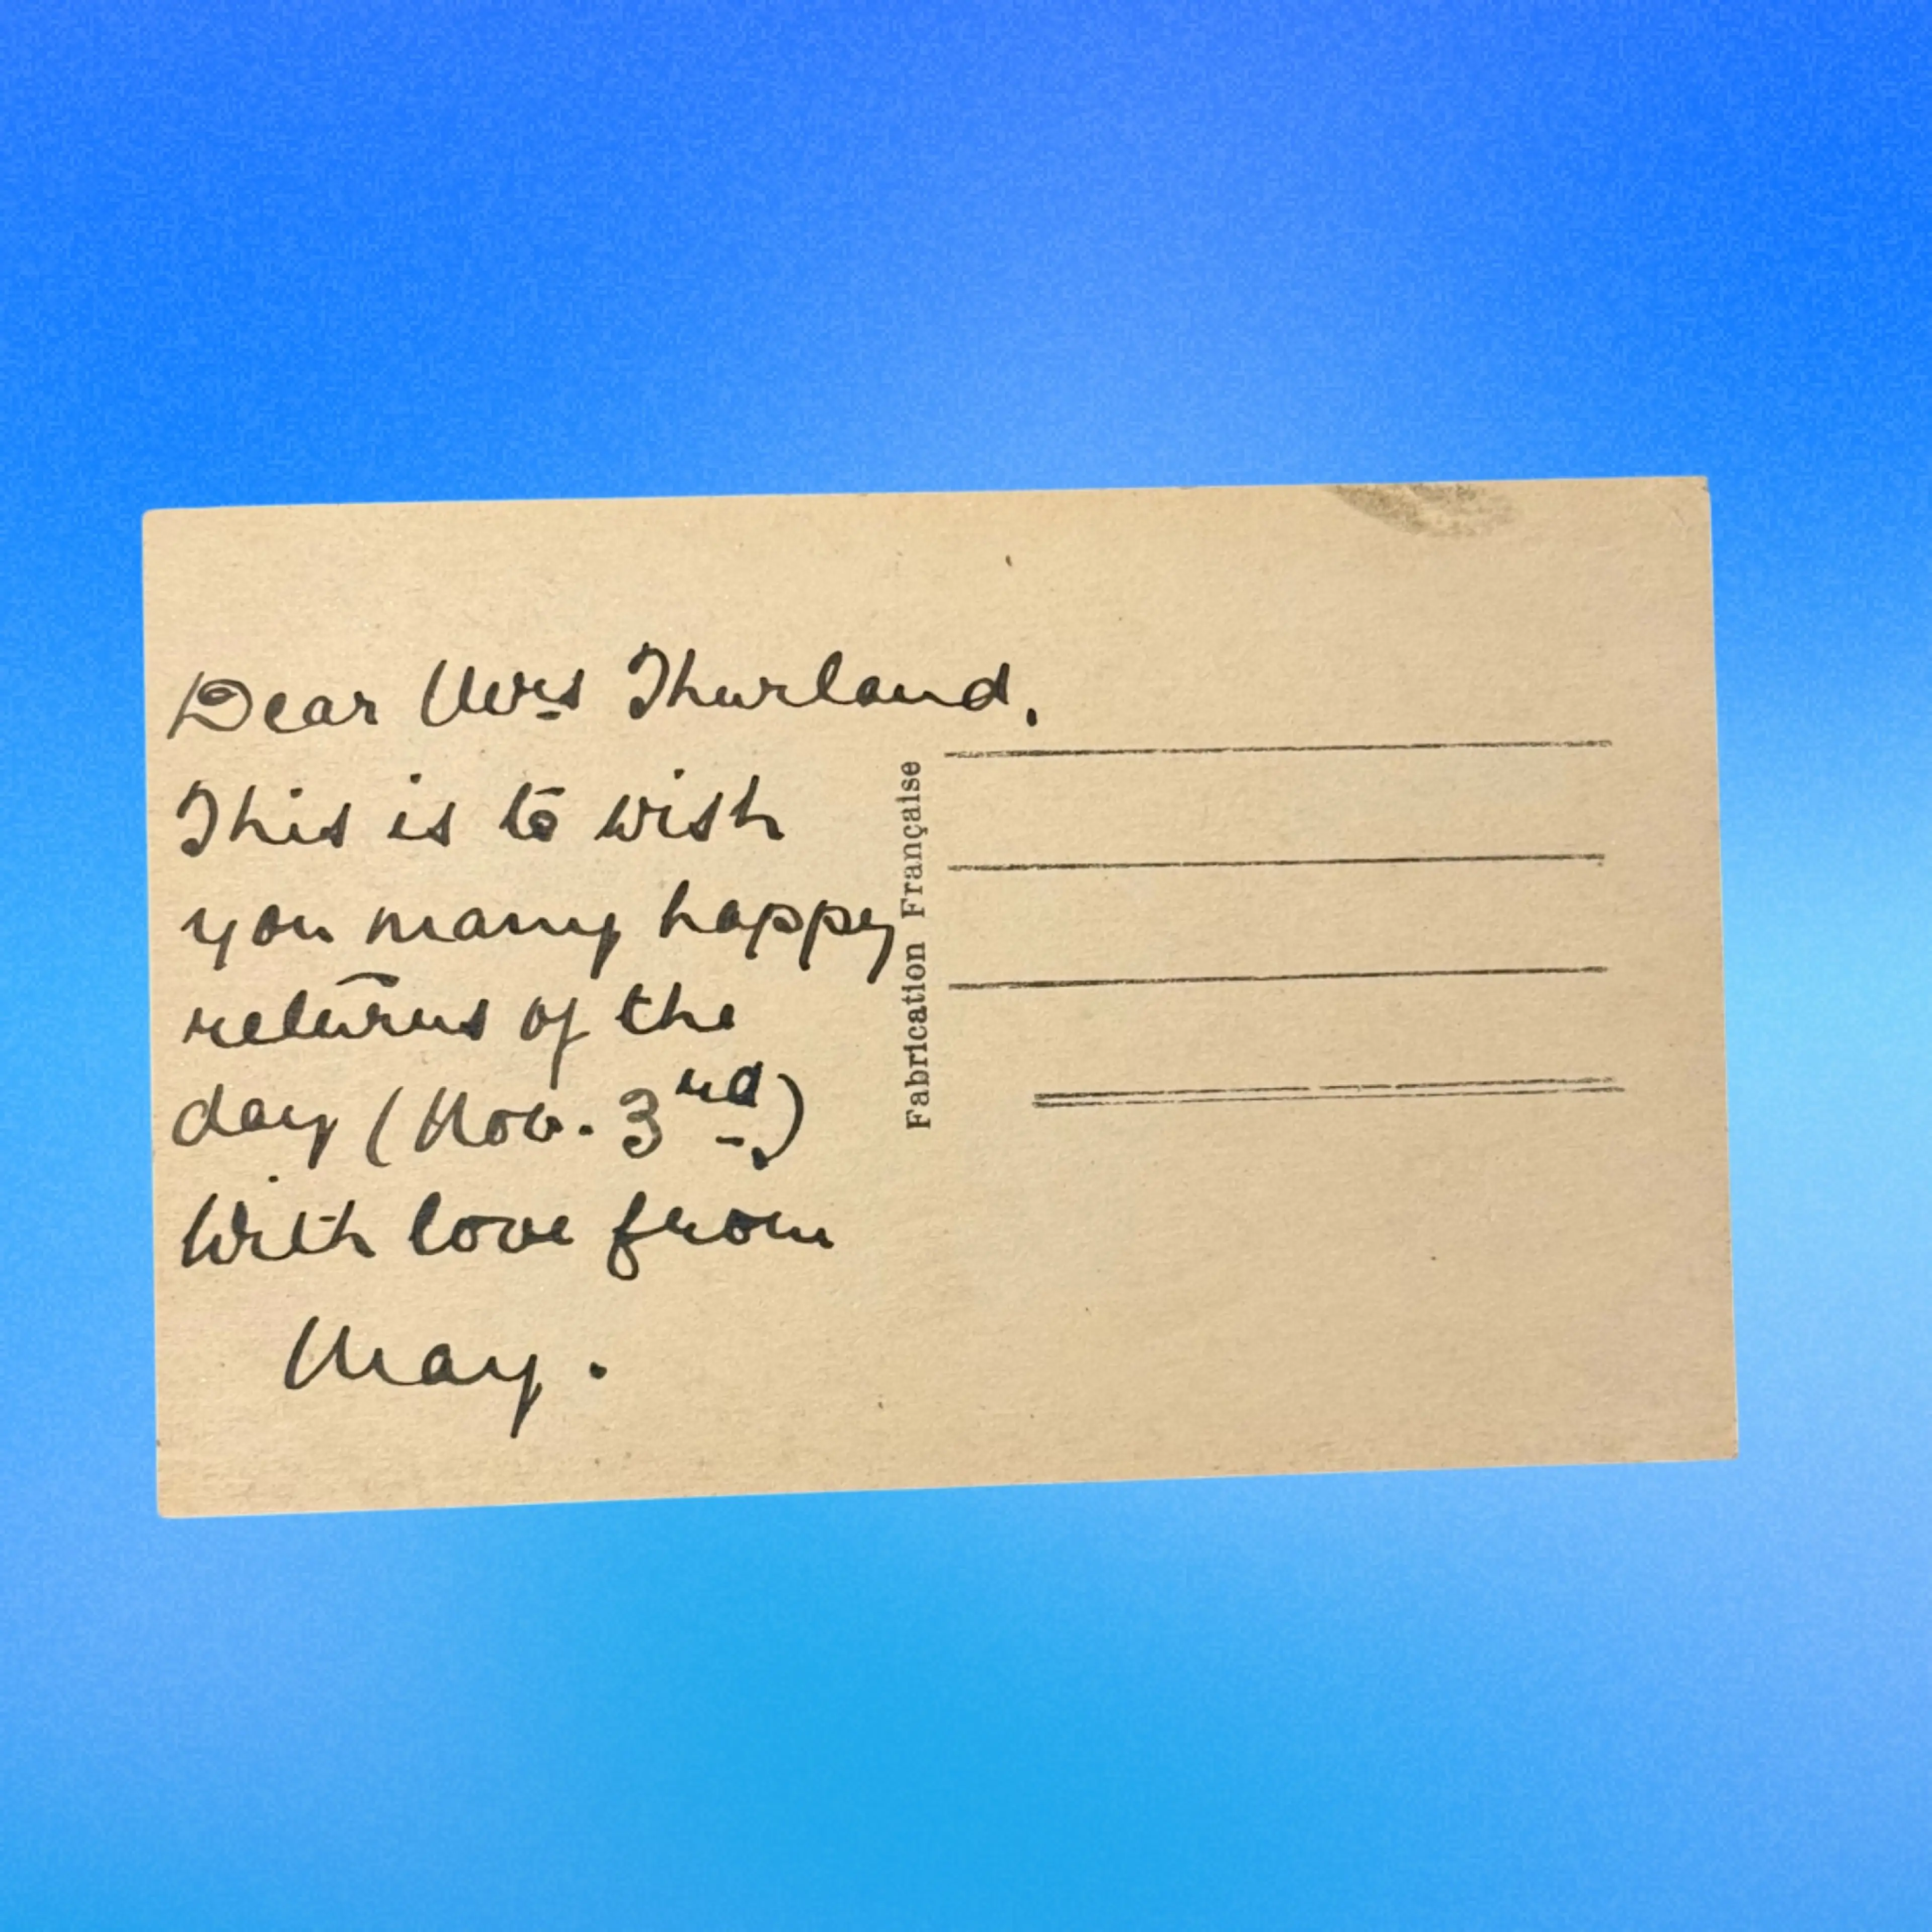 Dear Mrs Thurland,
This is to wish
you many happy
returns of the
day (Nov. 3rd.)
With love from
May.
Fabrication Française